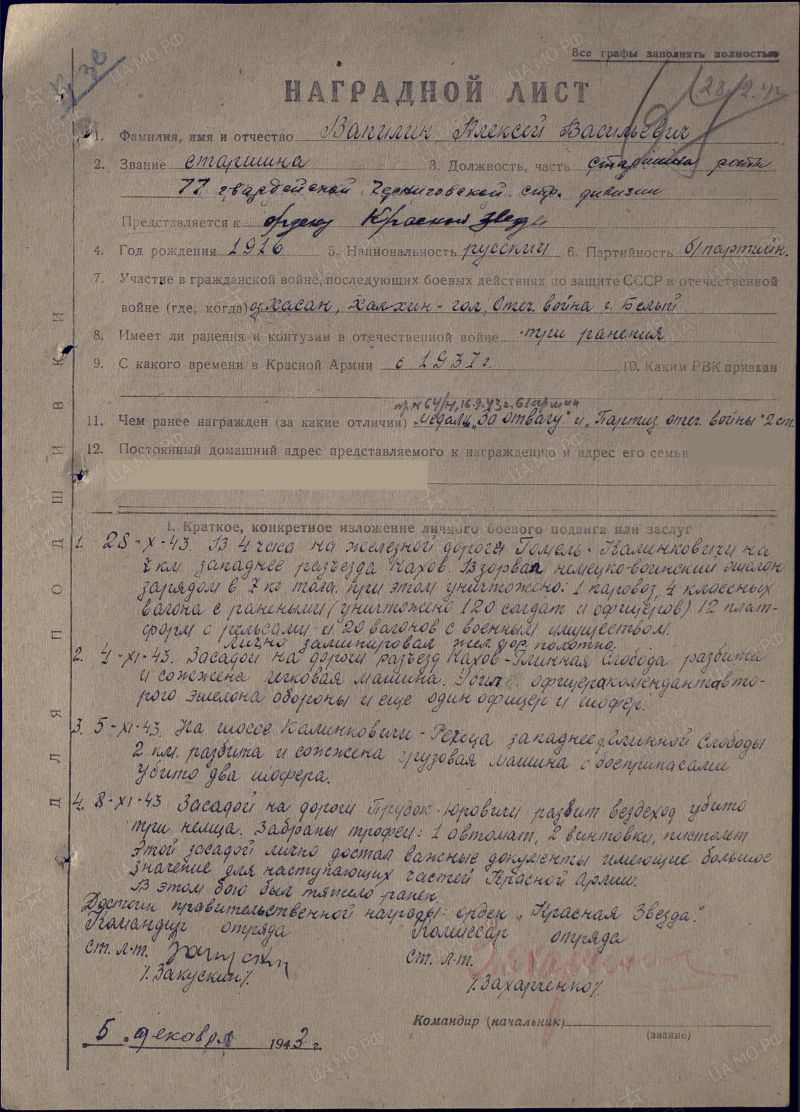 Все графы заполнять полностью
28/2.44
НАГРАДНОЙ ЛИСТ
1. Фамилия, имя и отчество Вапилин Алексей Васильевич
2. Звание старшина 3. Должность, часть старшина роты
77 гвардейской Черниговской стр. дивизии
Представляется к ордену Красной звезды
4. Год рождения 1916 5. Национальность русский 6. Партийность б/партийн.
7. Участие в гражданской войне, последующих боевых действиях по защите СССР и отечественной
войне (где, когда) оз Хасан, Халхин-гол, Отеч. война г. Белый
8. Имеет ли ранения и контузии в отечественной войне три ранения
9. С какого времени в Красной Армии с 1937 г. 10. Каким РВК призван
пр. № 64/н, 16.9.43 г. 61 армии
11. Чем ранее награжден (за какие отличия) медаль „За отвагу" и „Партиз. отеч. войны" 2 ст.
12. Постоянный домашний адрес представляемого к награждению и адрес его семьи
I. Краткое, конкретное изложение личного боевого подвига или заслуг
1. 28-X-43. В 4 часа на железной дороге Гомель-Калинковичи на
7 км западнее разъезда Кахов. Взорван немецко-воинский эшелон
зарядом в 7 кг тола. при этом уничтожено: 1 паровоз, 4 классных
вагона с ранеными (уничтожено 120 солдат и офицеров) 12 плат-
форм с рельсами и 20 вагонов с военным имуществом.
Лично заминировал жел дор полотно.
2. 4-XI-43. Засадой на дороги разъезд Кахов-Глинная Слобода разбита
и сожжена легковая машина. офицера коменданта вто-
рого эшелона обороны и еще один офицер и шофер.
3. 5-XI-43. На шоссе Калинковичи-Речица западнее Глинной Слободы
2 км. разбита и сожжена грузовая машина с боеприпасами
Убито два шофера.
4. 8-XI-43 Засадой на дороги Прудок-Юровичи разбит вездеход убито
три немца. Забраны трофеи: 1 автомат, 2 винтовки, пистолет
Этой засадой лично достал важные документы имеющие большое
значение для наступающих частей Красной армии.
В этом бою был тяжело ранен.
Достоин правительственной награды: орден „Красная Звезда."
Командир отряда Комиссар отряда
ст. л-т. ст. л-т.
/. Закускин/. /. Захарченко/.
Командир (начальник)
(звание)
5 декабря 1943 г.
ДЛЯ ПОДШИВКИ
ЦАМО.РФ